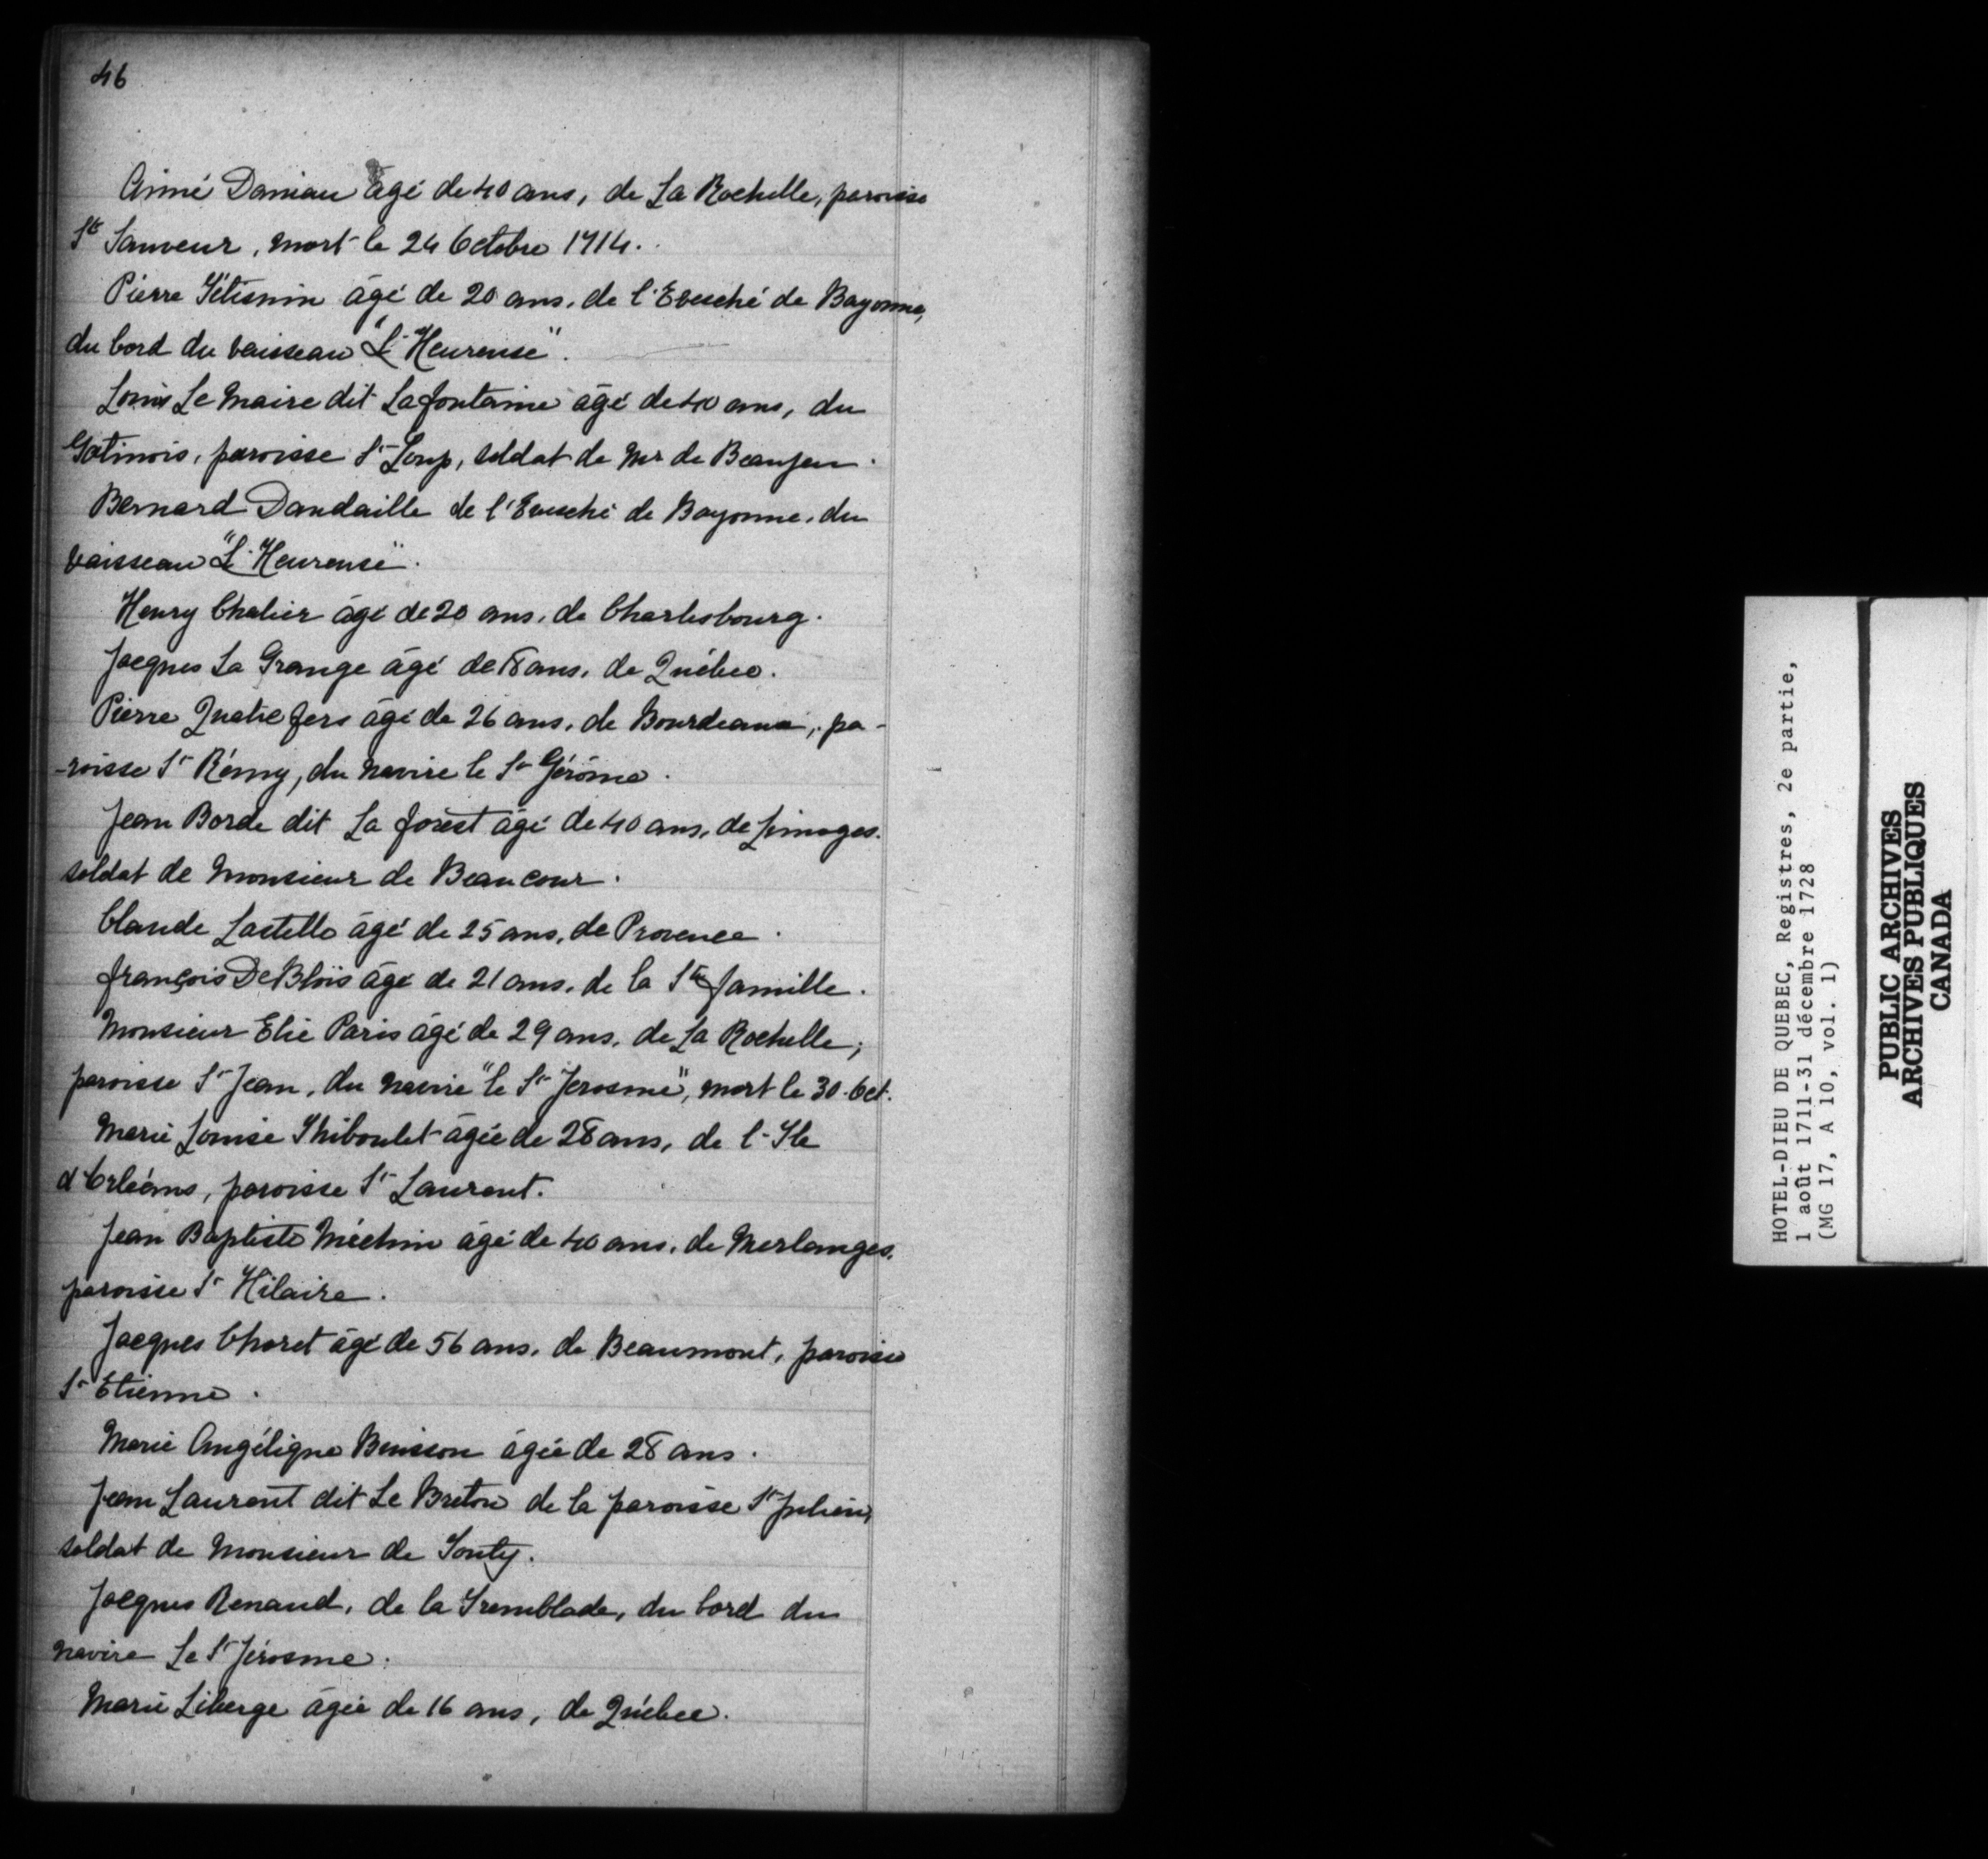 46
Aimé Daniau âgé de 40 ans, de La Rochelle, paroisse
St Sauveur, mort le 24 Octobre 1714.
Pierre âgé de 20 ans, de l'Evesché de Bayonne,
du bord du vaisseau "L'Heureuse".
Louis Le Maire dit Lafontaine âgé de 40 ans, du
Gatinois, paroisse St Loup, soldat de Mr de Beaujeu.
Bernard Dandaille de l'Evesché de Bayonne, du
vaisseau "L'Heureuse".
Henry Chalier âgé de 20 ans, de Charlesbourg.
Jacques La Grange âgé de 18 ans, de Québec.
Pierre Quatrefers âgé de 26 ans, de Bourdeaux, pa-
-roisse St Rémy, du navire le St Gérôme.
Jean Borde dit La forest âgé de 40 ans, de Limoges.
soldat de Monsieur de Beaucour.
Claude Lastelle âgé de 25 ans, de Provence.
françois DeBlois âgé de 21 ans, de la Ste famille.
Monsieur Elie Paris âgé de 29 ans, de La Rochelle,
paroisse St Jean, du navire "le St Jerosme", mort le 30 Oct.
Marie Louise Thiboulet âgée de 28 ans, de l'Ile
d'Orléans, paroisse St Laurent.
Jean Baptiste Méchin âgé de 40 ans, de Merlanges,
paroisse St Hilaire.
Jacques Charet âgé de 56 ans, de Beaumont, paroisse
St Etienne.
Marie Angélique Buisson âgée de 28 ans.
Jean Laurent dit Le Breton de la paroisse St Julien,
soldat de Monsieur de Tonty.
Jacques Renaud, de la Tremblade, du bord du
navire Le St Jérosme.
Marie Liberge âgée de 16 ans, de Québec.
HOTEL-DIEU DE QUEBEC, Registres, 2e partie,
1 août 1711-31 décembre 1728
(MG 17, A 10, vol. 1)
PUBLIC ARCHIVES
ARCHIVES PUBLIQUES
CANADA